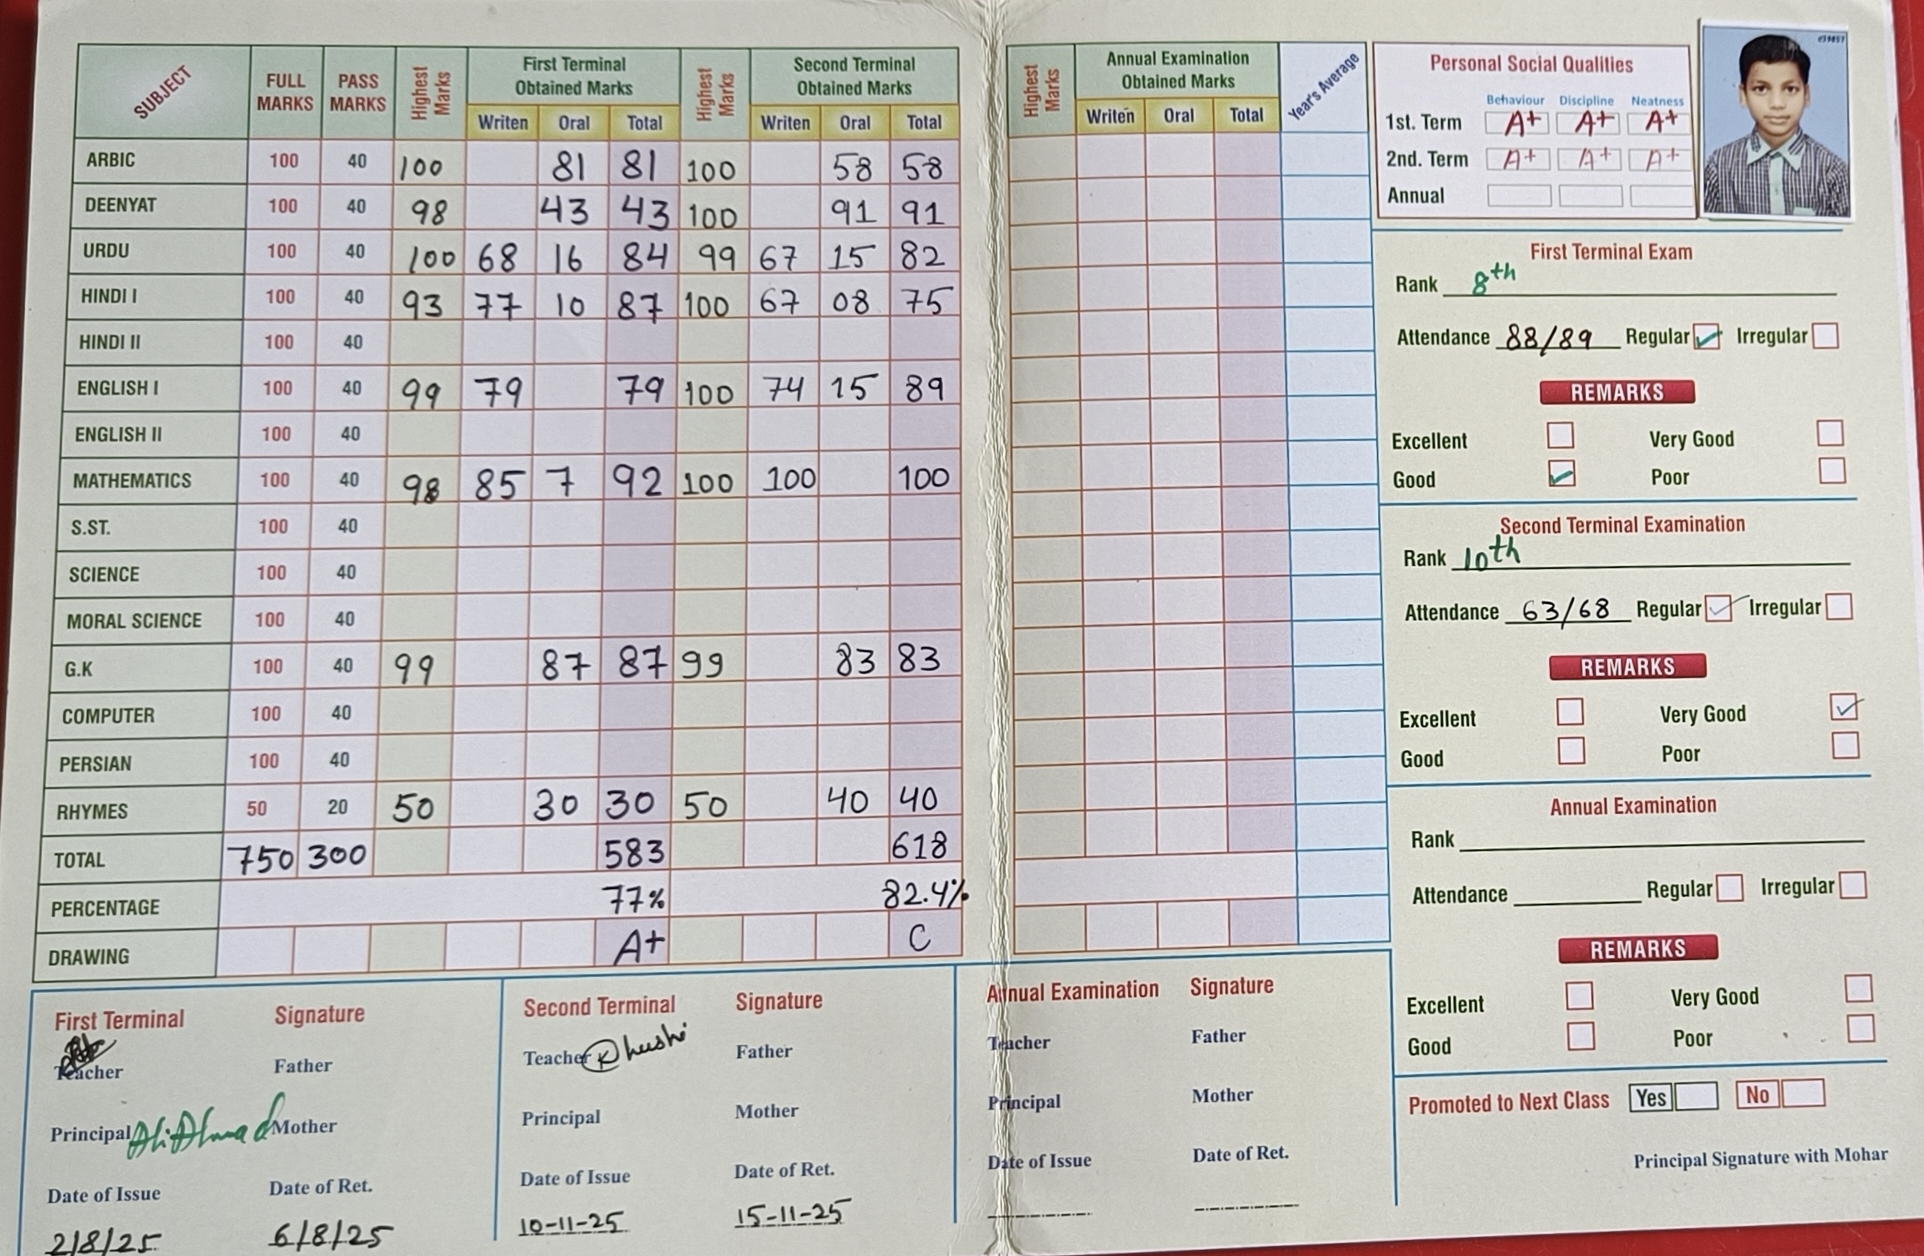 SUBJECT FULL MARKS PASS MARKS Highest Marks First Terminal Obtained Marks Highest Marks Second Terminal Obtained Marks
Writen Oral Total Writen Oral Total
ARBIC 100 40 100 81 81 100 58 58
DEENYAT 100 40 98 43 43 100 91 91
URDU 100 40 100 68 16 84 99 67 15 82
HINDI I 100 40 93 77 10 87 100 67 08 75
HINDI II 100 40
ENGLISH I 100 40 99 79 79 100 74 15 89
ENGLISH II 100 40
MATHEMATICS 100 40 98 85 7 92 100 100 100
S.ST. 100 40
SCIENCE 100 40
MORAL SCIENCE 100 40
G.K 100 40 99 87 87 99 83 83
COMPUTER 100 40
PERSIAN 100 40
RHYMES 50 20 50 30 30 50 40 40
TOTAL 750 300 583 618
PERCENTAGE 77% 82.4%
DRAWING A+ C
First Terminal Signature
Teacher Father
Principal Ali Ahmad Mother
Date of Issue Date of Ret.
2/8/25 6/8/25
Second Terminal Signature
Teacher Khushi Father
Principal Mother
Date of Issue Date of Ret.
10-11-25 15-11-25
Highest Marks Annual Examination Obtained Marks Year's Average
Writen Oral Total
Annual Examination Signature
Teacher Father
Principal Mother
Date of Issue Date of Ret.
Personal Social Qualities
Behaviour Discipline Neatness
1st. Term A+ A+ A+
2nd. Term A+ A+ A+
Annual
First Terminal Exam
Rank 8th
Attendance 88/89 Regular Irregular
REMARKS
Excellent Very Good
Good Poor
Second Terminal Examination
Rank 10th
Attendance 63/68 Regular Irregular
REMARKS
Excellent Very Good
Good Poor
Annual Examination
Rank
Attendance Regular Irregular
REMARKS
Excellent Very Good
Good Poor
Promoted to Next Class Yes No
Principal Signature with Mohar